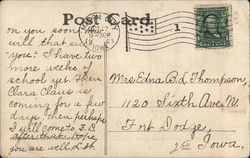 Post Card.
on you soon. Will
that suit
you? I have two
more weeks of
school yet. Then
Clara Claus is
coming for a few
days, then perhaps
I will come to F.D.
you are well. L.H.
1
Mrs. Edna B. L. Thompson,
1120 Sixth Ave. N.
Fort Dodge,
Iowa.